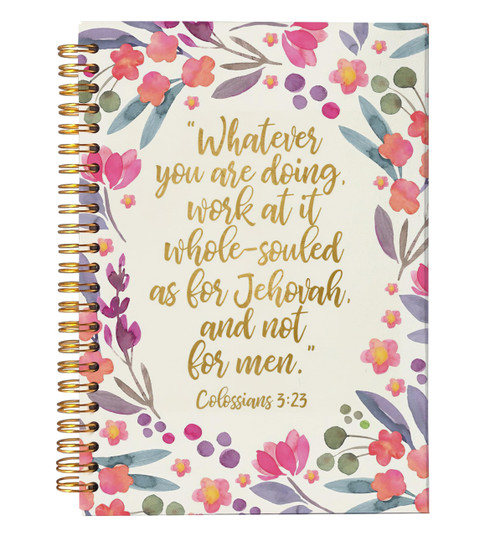 “Whatever
you are doing,
work at it
whole-souled
as for Jehovah,
and not
for men.”
Colossians 3:23